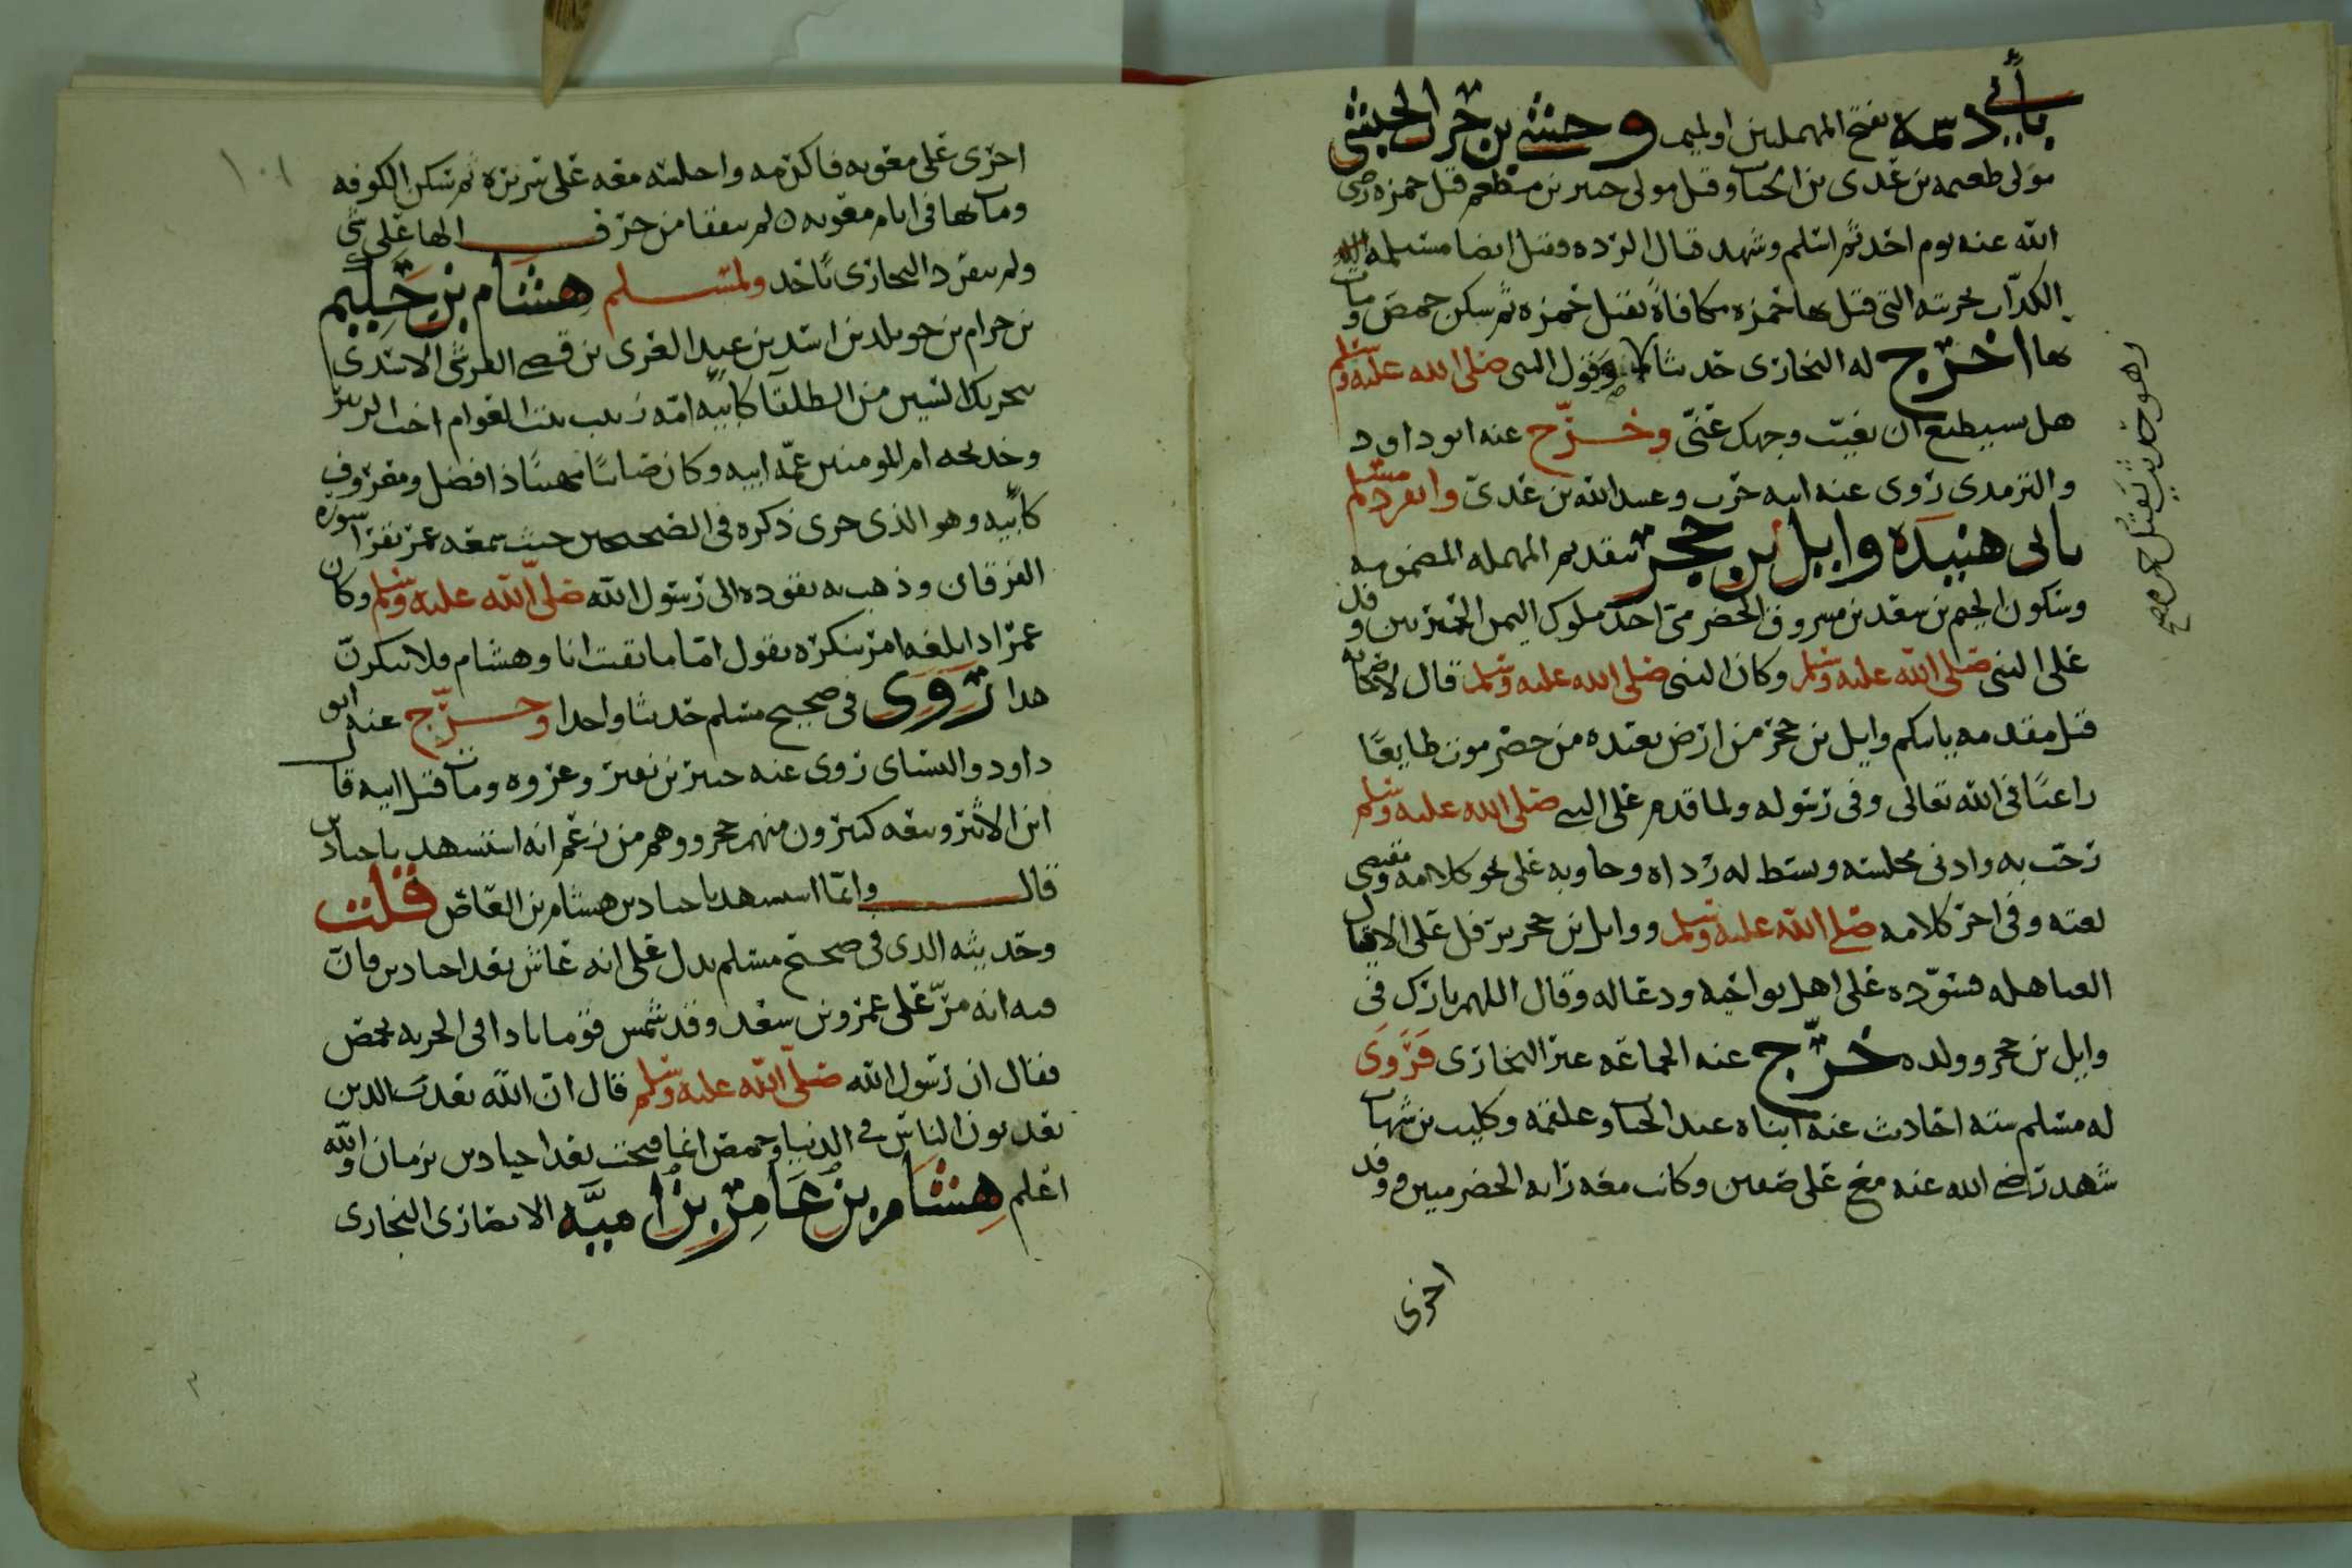 بأبي دسمة بفتح المهملتين اولميم وحشي بن حرب الحبشي
مولى طعيمه بن عدى بن الخيار وقيل مولى جبير بن مطعم قتل حمزه رضى
الله عنه يوم احد ثم اسلم وشهد قتال الرده وقتل ايضا مسيلمه
الكذاب بحربته التي قتل بها حمزه مكافاة بقتل حمزه ثم سكن حمص ومات
بها اخرج له البخاري حديثا وقول النبي صلى الله عليه وسلم
هل تستطيع ان تغيب وجهك عني وخرج عنه ابو داود
والترمذى روى عنه ابنه حرب وعبيد الله بن عدي وانفرد مسلم
بابى هنيدة وايل بن حجر بتقديم المهمله المضمومه
وسكون الجيم بن سعد بن مسروق الحضرمي احد ملوك اليمن الحميريين وفد
على النبي صلى الله عليه وسلم وكان النبي صلى الله عليه وسلم قال لاصحابه
قبل مقدمه ياتيكم وايل بن حجر من ارض بعيده من حضرموت طايعا
راغبا في الله تعالى وفي رسوله ولما قدم على النبي صلى الله عليه وسلم
رحب به وادنى مجلسه وبسط له رداه وجاوبه على نحو كلامه ومقتضى
لغته وفي اخر كلامه صلى الله عليه وسلم ووايل بن حجر يترفل على الاقيال
العباهله فسوده على اهل نواحيه ودعا له وقال اللهم بارك في
وايل بن حجر وولده خرج عنه الجماعه غير البخارى فروى
له مسلم سته احاديث عنه ابناه عبد الجبار وعلقمه وكليب بن شهاب
شهد رضى الله عنه مع على صفين وكانت معه رايه الحضرميين وفد
اخرى
وهو حديث بقتل حمزه
١٠١
اخرى على معويه فاكرمه واجلسه معه على سريره ثم سكن الكوفه
ومات بها في ايام معويه لم يتفقا من حرف الها على شي
ولم ينفرد البخارى باحد ولمسلم هشام بن حكيم
بن حزام بن خويلد بن اسد بن عبد العزى بن قصي القرشي الاسدى
بتحريك السين من الطلقا كابيه امه زينب بنت العوام اخت الزبير
وخديجه ام المومنين عمه ابيه وكان صاينا مهيبا ذا فضل ومعروف
كابيه وهو الذى جرى ذكره في الصحيحين حيث سمعه عمر يقرا سوره
الفرقان وذهب به يقوده الى رسول الله صلى الله عليه وسلم وكان
عمر اذا بلغه امر ينكره يقول اما ما بقيت انا وهشام فلا يكون
هذا روى في صحيح مسلم حديثا واحدا وخرج عنه ابو
داود والنسائى روى عنه جبير بن نفير وعروه ومات قبل ابيه قال
ابن الاثير وتبعه كثيرون منهم حجر ووهم من زعم انه استشهد باجنادين
قال وانما استشهد باجنادين هشام بن العاص قلت
وحديثه الذى في صحيح مسلم يدل على انه عاش بعد اجنادين فان
فيه انه مر على عمرو بن سعد وقد شمس قوما بادا في الجزيه بحمص
فقال ان رسول الله صلى الله عليه وسلم قال ان الله يعذب الذين
يعذبون الناس في الدنيا وحمص انما فتحت بعد اجنادين بزمان والله
اعلم هشام بن عامر بن امية الانصارى البخارى